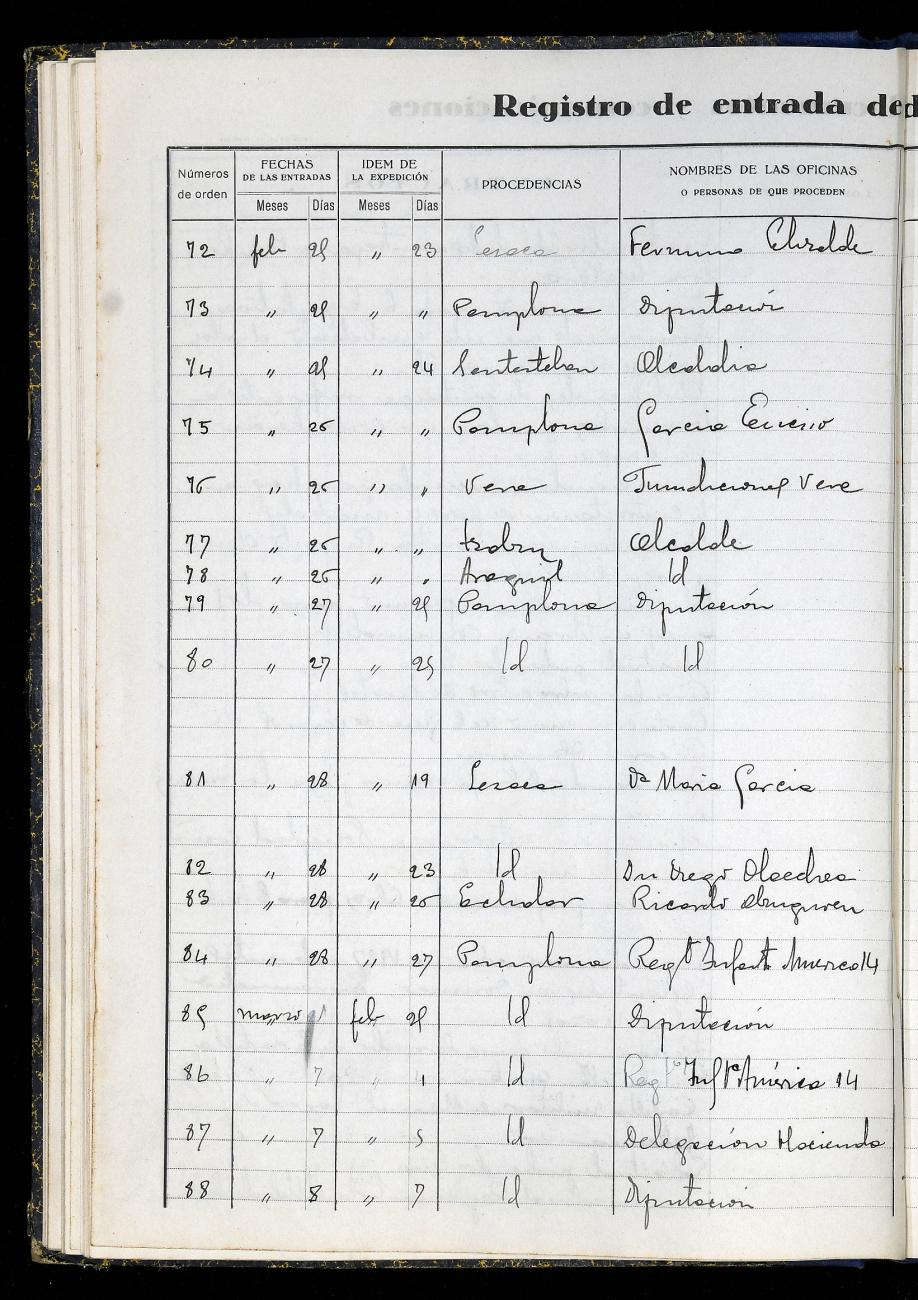 Registro de entrada de
Números de orden
FECHAS DE LAS ENTRADAS
IDEM DE LA EXPEDICIÓN
PROCEDENCIAS
NOMBRES DE LAS OFICINAS O PERSONAS DE QUE PROCEDEN
Meses Días Meses Días
72 feb 25 " 23 Lesaca
73 " 25 " " Pamplona Diputación
74 " 25 " 24 Santesteban Alcaldia
75 " 26 " " Pamplona Garcia
76 " 26 " " Vera Fundiciones Vera
77 " 26 " " Alcalde
78 " 26 " " Araquil Id
79 " 27 " 25 Pamplona Diputación
80 " 27 " 25 Id Id
81 " 28 " 19 Lesaca Dª Maria Garcia
82 " 28 " 23 Id Dn Diego Olaechea
83 " 28 " 26 Echalar Ricardo
84 " 28 " 27 Pamplona Regto Infanta America 14
85 marzo 1 feb 25 Id Diputación
86 " 7 " 1 Id Regto Infta América 14
87 " 7 " 5 Id Delegación Hacienda
88 " 8 " 7 Id Diputación